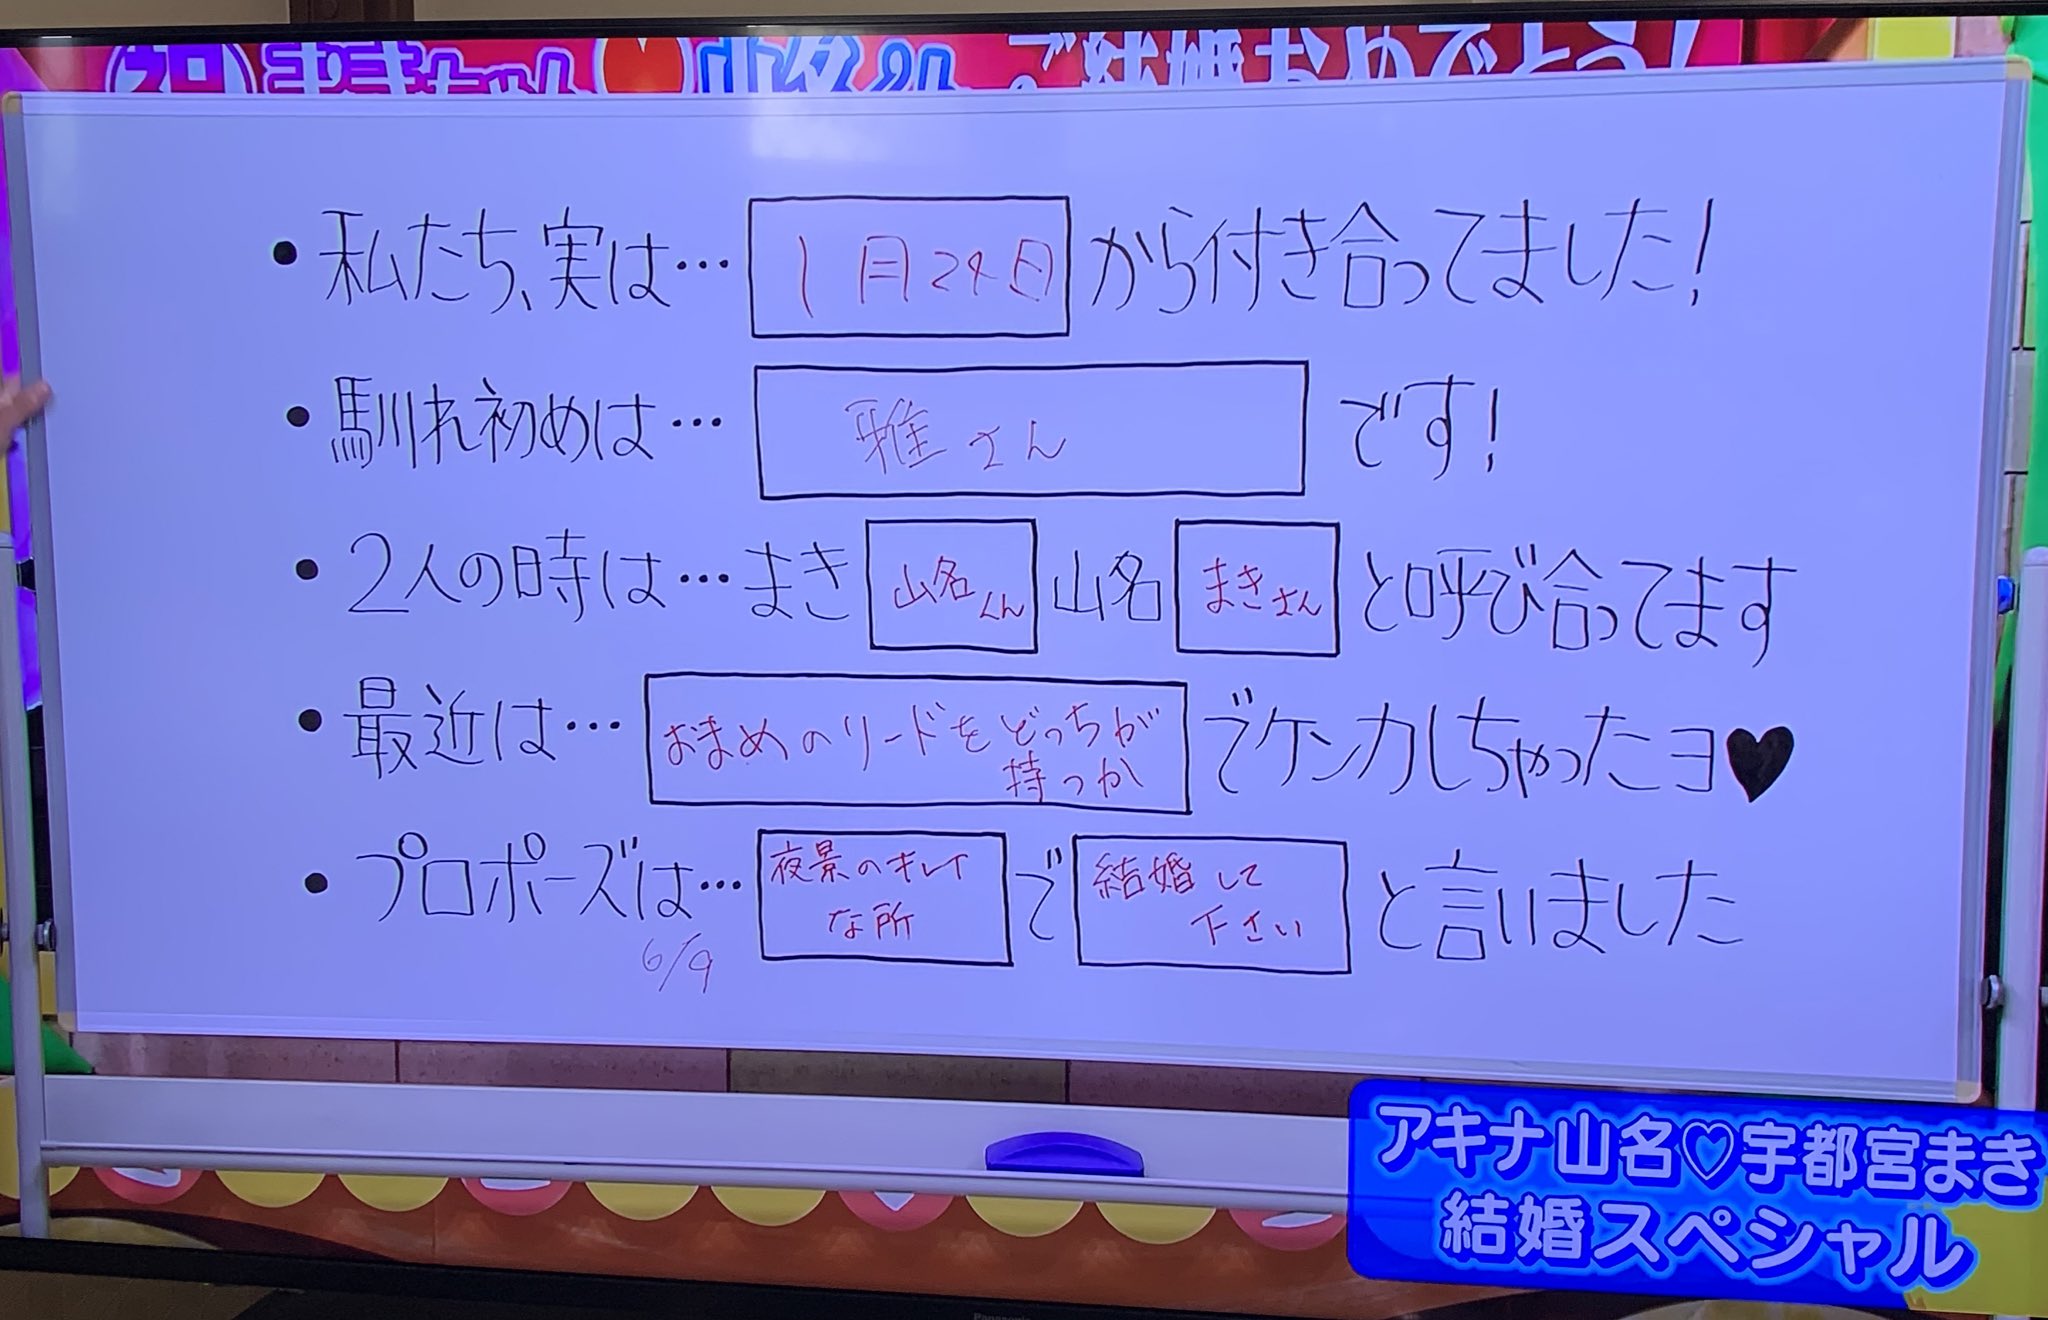 祝 まきちゃん 山名くん ご結婚おめでとう!
・私たち、実は… 1月24日 から付き合ってました!
・馴れ初めは… 雅さん です!
・2人の時は…まき 山名くん 山名 まきさん と呼び合ってます
・最近は… おまめのリードをどっちが
持つか でケンカしちゃったヨ♥
・プロポーズは… 夜景のキレイ
な所 で 結婚して
下さい と言いました
6/9
アキナ山名♡宇都宮まき
結婚スペシャル
Panasonic